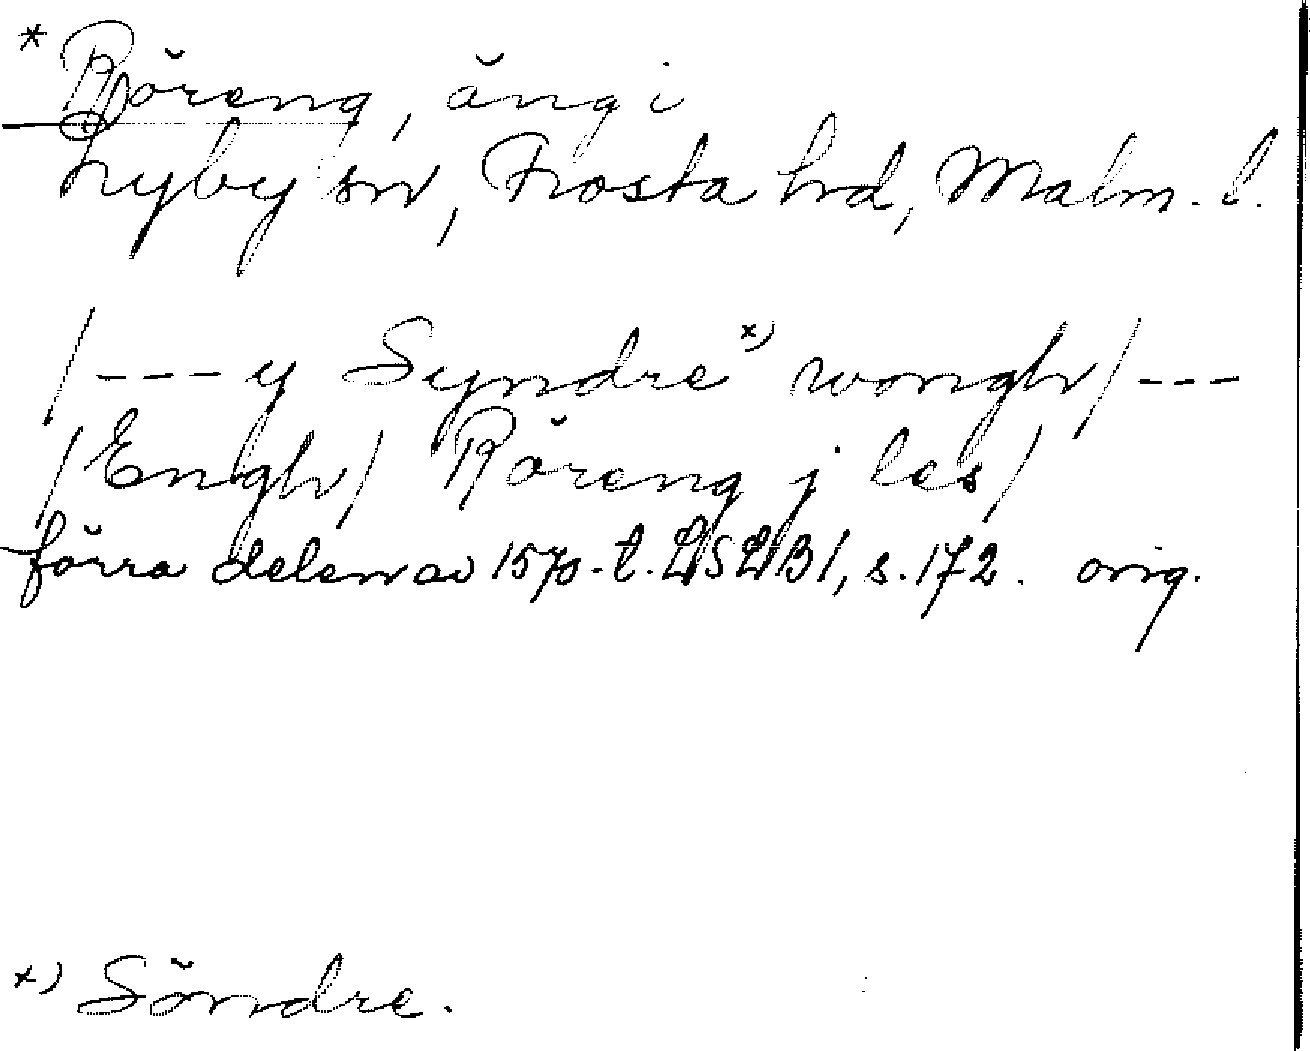 * Röreng, äng i
Lyby sn, Frosta hd, Malm. l.
/---y Syndre *) wongh/---
/Engh/ Röreng j les/
förra delen av 1570-t. LSLB 1, s. 172. orig.
*) Söndre.